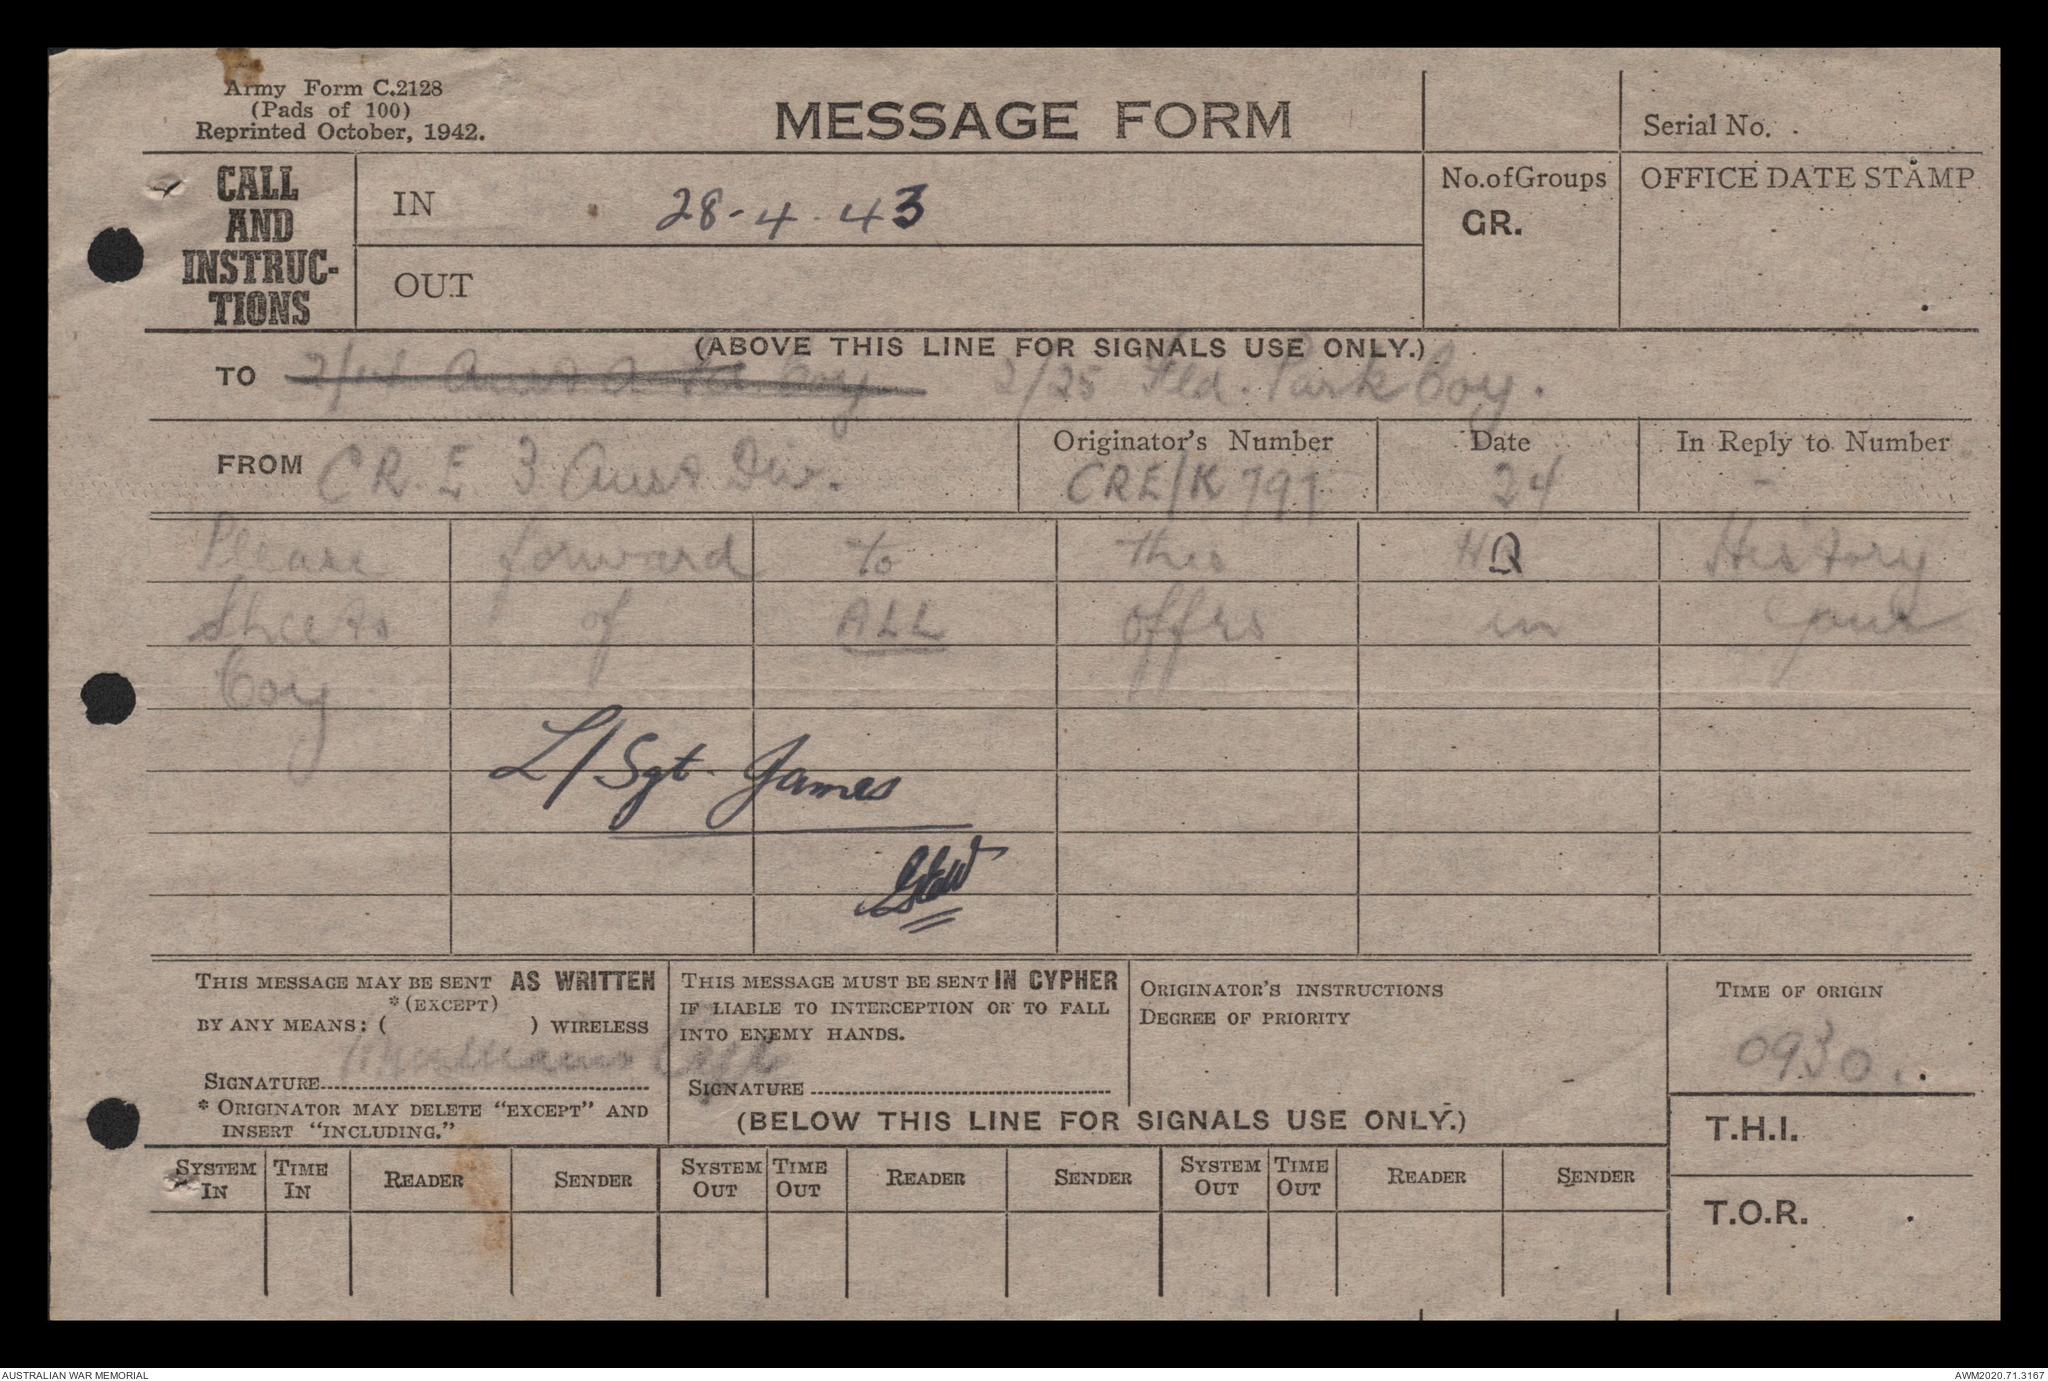 Army Form C.2128
(Pads of 100)
Reprinted October, 1942.
MESSAGE FORM
Serial No.
CALL
AND
INSTRUC-
TIONS
IN 28-4-43
OUT
No.ofGroups
GR.
OFFICE DATE STAMP
(ABOVE THIS LINE FOR SIGNALS USE ONLY.)
TO 2/25 Fld. Park Coy.
FROM CR.E 3 Aust Div.
Originator's Number
CRE/K
Date
24
In Reply to Number
-
Please forward to this HQ History
Sheets of ALL offrs in your
Coy
L/Sgt. James
THIS MESSAGE MAY BE SENT AS WRITTEN
*(EXCEPT)
BY ANY MEANS: ( ) WIRELESS
SIGNATURE
* ORIGINATOR MAY DELETE "EXCEPT" AND
INSERT "INCLUDING."
THIS MESSAGE MUST BE SENT IN CYPHER
IF LIABLE TO INTERCEPTION OR TO FALL
INTO ENEMY HANDS.
Capt
SIGNATURE
ORIGINATOR'S INSTRUCTIONS
DEGREE OF PRIORITY
TIME OF ORIGIN
0930.
(BELOW THIS LINE FOR SIGNALS USE ONLY.)
T.H.I.
T.O.R.
SYSTEM IN TIME IN READER SENDER SYSTEM OUT TIME OUT READER SENDER SYSTEM OUT TIME OUT READER SENDER
AUSTRALIAN WAR MEMORIAL
AWM2020.71.3167